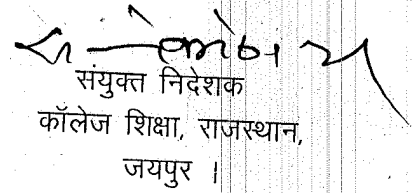 संयुक्त निदेशक
कॉलेज शिक्षा, राजस्थान,
जयपुर ।